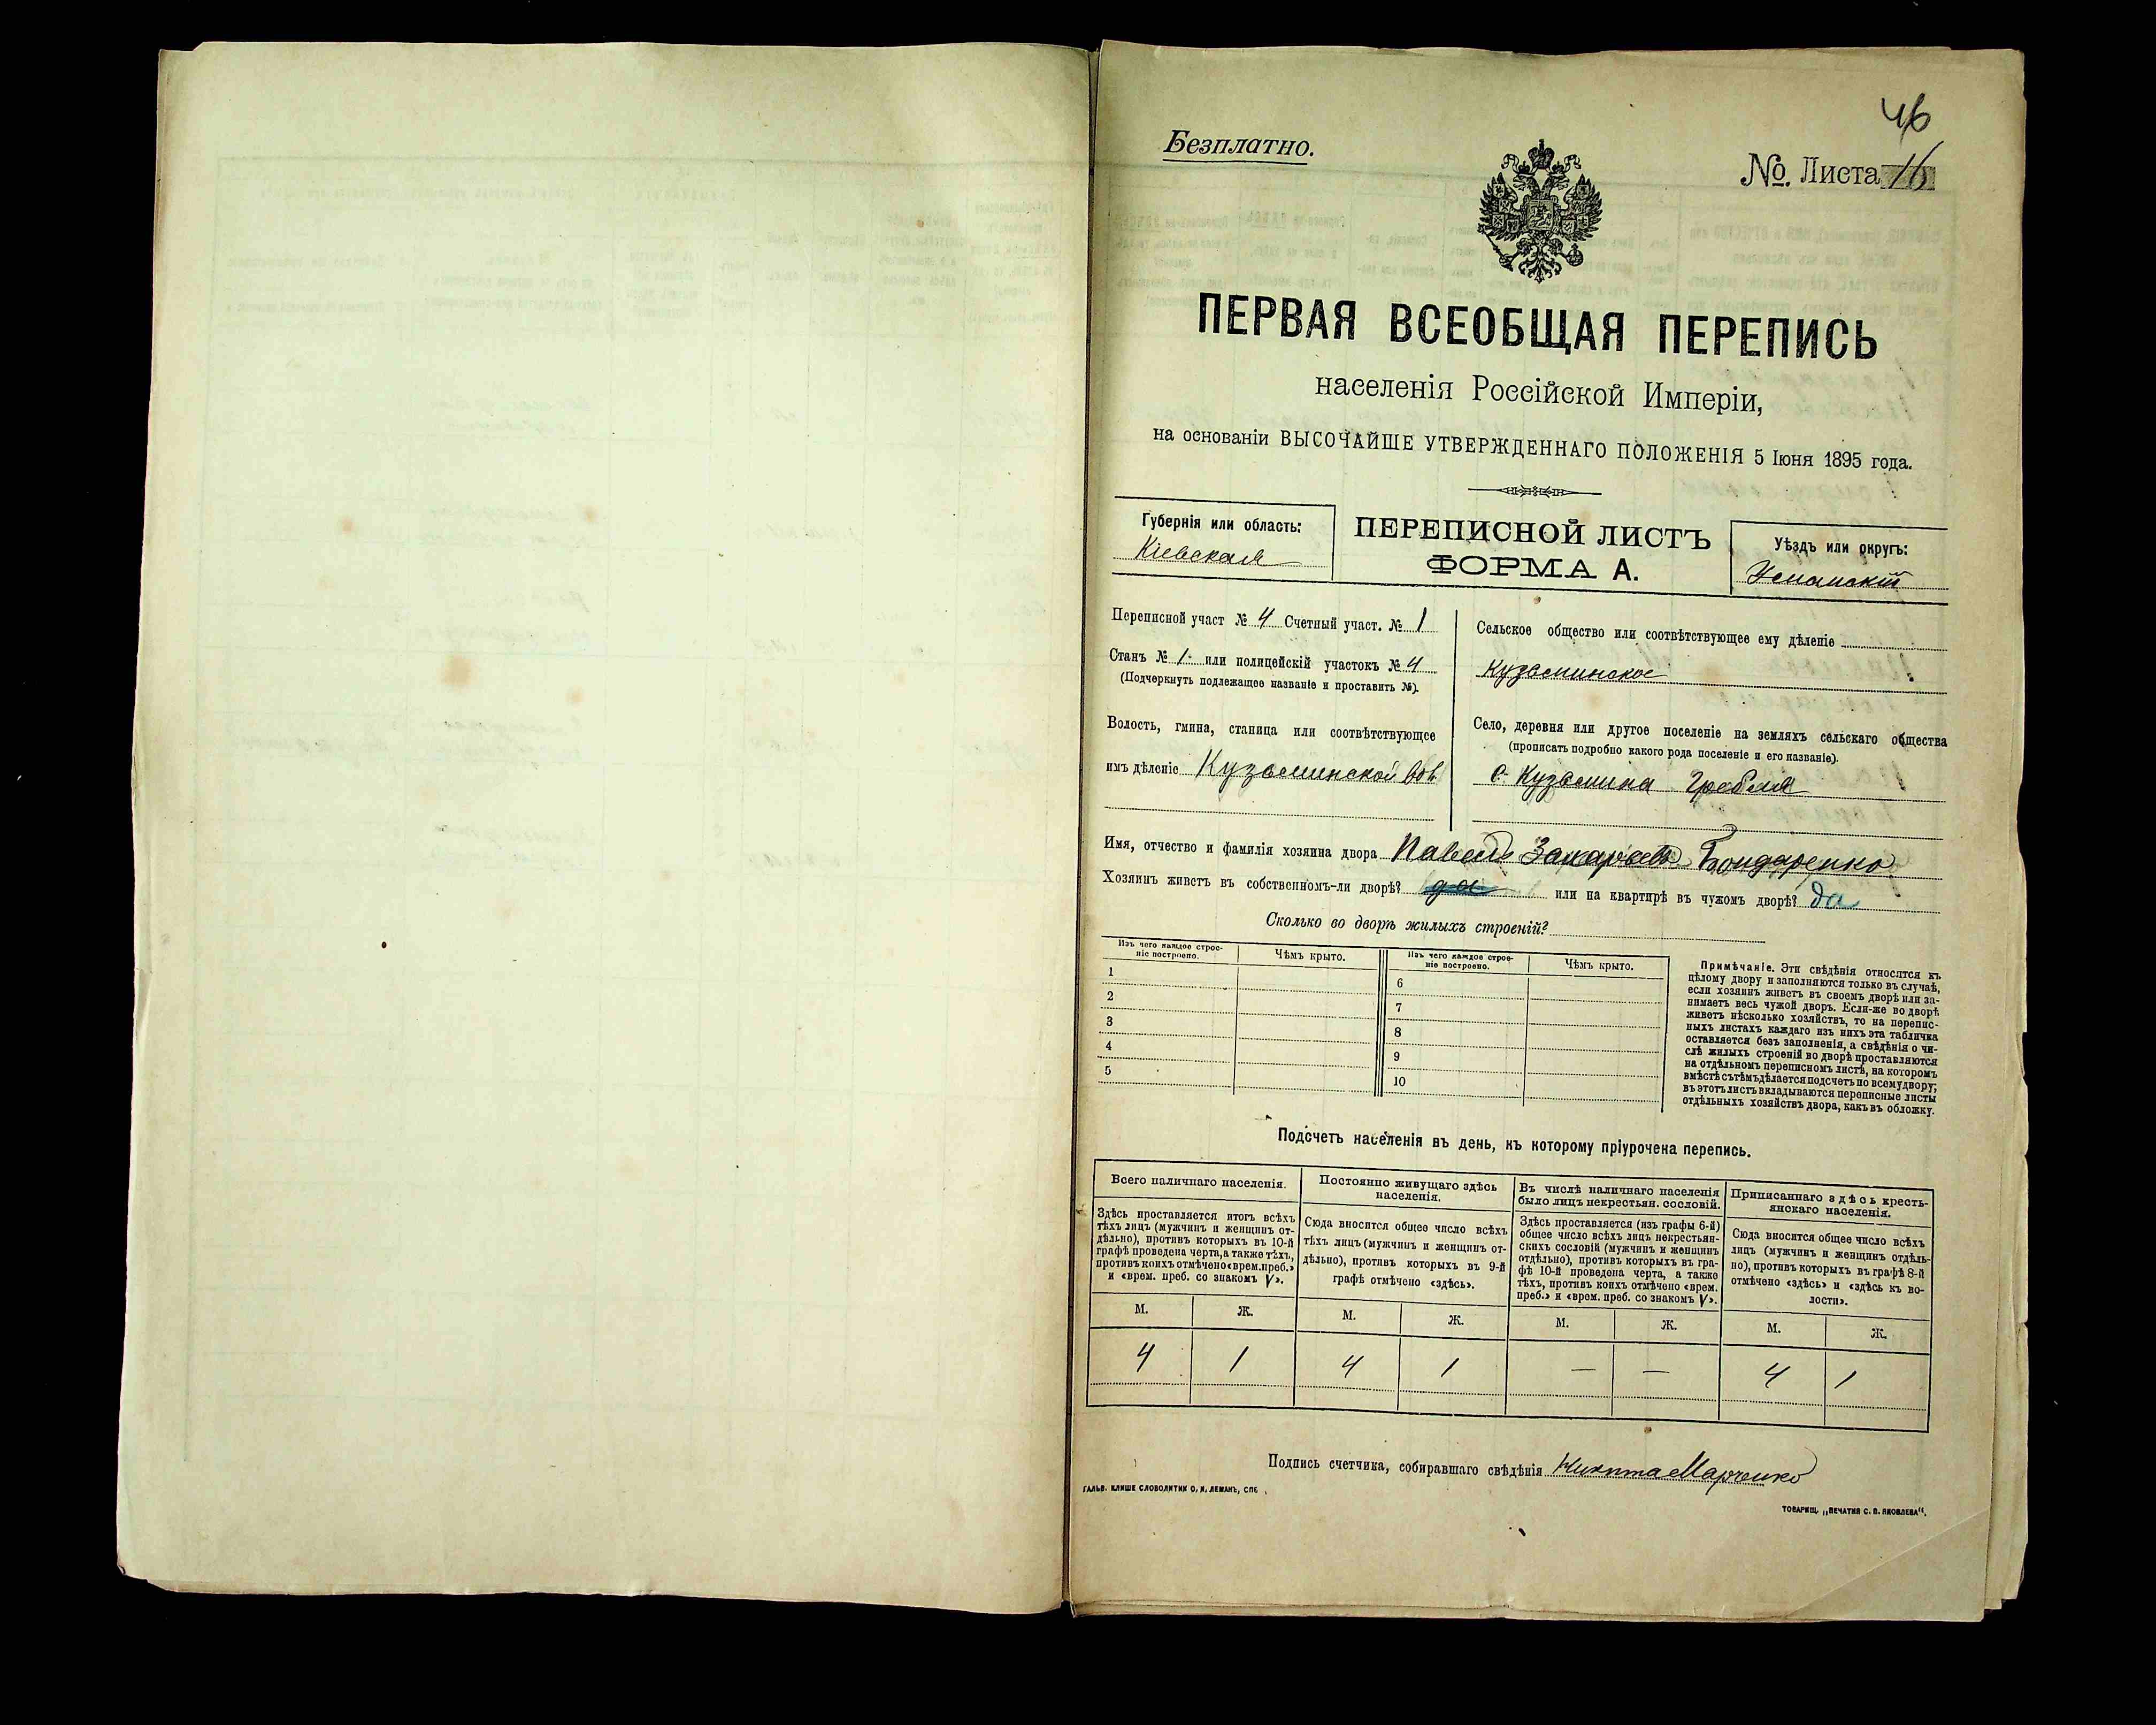 46
Безплатно.
№ Листа 16
ПЕРВАЯ ВСЕОБЩАЯ ПЕРЕПИСЬ
населенія Россійской Имперіи,
на основаніи ВЫСОЧАЙШЕ УТВЕРЖДЕННАГО ПОЛОЖЕНІЯ 5 Іюня 1895 года.
Губернія или область:
Кіевская
ПЕРЕПИСНОЙ ЛИСТЪ
ФОРМА А.
Уѣздъ или округъ:
Уманскій
Переписной участ № 4 Счетный участ. № 1
Станъ № 1. или полицейскій участокъ № 4
(Подчеркнуть подлежащее названіе и проставить №).
Волость, гмина, станица или соотвѣтствующее
имъ дѣленіе Кузьминской вол
Сельское общество или соотвѣтствующее ему дѣленіе
Кузьминское
Село, деревня или другое поселеніе на земляхъ сельскаго общества
(прописать подробно какого рода поселеніе и его названіе).
с. Кузьмина Гребля
Имя, отчество и фамилія хозяина двора Павелъ Захарьевъ Бондаренко
Хозяинъ живетъ въ собственномъ-ли дворѣ? да или на квартирѣ въ чужомъ дворѣ? да
Сколько во дворѣ жилыхъ строеній?
Изъ чего каждое строе-
ніе построено.
Чѣмъ крыто.
Изъ чего каждое строе-
ніе построено.
Чѣмъ крыто.
1
2
3
4
5
6
7
8
9
10
Примѣчаніе. Эти свѣдѣнія относятся къ
цѣлому двору и заполняются только въ случаѣ,
если хозяинъ живетъ въ своемъ дворѣ или за-
нимаетъ весь чужой дворъ. Если-же во дворѣ
живетъ нѣсколько хозяйствъ, то на перепис-
ныхъ листахъ каждаго изъ нихъ эта табличка
оставляется безъ заполненія, а свѣдѣнія о чи-
слѣ жилыхъ строеній во дворѣ проставляются
на отдѣльномъ переписномъ листѣ, на которомъ
вмѣстѣ съ тѣмъ дѣлается подсчетъ по всему двору;
въ этотъ листъ вкладываются переписные листы
отдѣльныхъ хозяйствъ двора, какъ въ обложку.
Подсчетъ населенія въ день, къ которому пріурочена перепись.
Всего наличнаго населенія.
Здѣсь проставляется итогъ всѣхъ
тѣхъ лицъ (мужчинъ и женщинъ от-
дѣльно), противъ которыхъ въ 10-й
графѣ проведена черта, а также тѣхъ,
противъ коихъ отмѣчено «врем. преб.»
и «врем. преб. со знакомъ V».
Постоянно живущаго здѣсь
населенія.
Сюда вносится общее число всѣхъ
тѣхъ лицъ (мужчинъ и женщинъ от-
дѣльно), противъ которыхъ въ 9-й
графѣ отмѣчено «здѣсь».
Въ числѣ наличнаго населенія
было лицъ некрестьян. сословій.
Здѣсь проставляется (изъ графы 6-й)
общее число всѣхъ лицъ некрестьян-
скихъ сословій (мужчинъ и женщинъ
отдѣльно), противъ которыхъ въ гра-
фѣ 10-й проведена черта, а также
тѣхъ, противъ коихъ отмѣчено «врем.
преб.» и «врем. преб. со знакомъ V».
Приписаннаго здѣсь кресть-
янскаго населенія.
Сюда вносится общее число всѣхъ
лицъ (мужчинъ и женщинъ отдѣль-
но), противъ которыхъ въ графѣ 8-й
отмѣчено «здѣсь» и «здѣсь къ во-
лости».
М. Ж. М. Ж. М. Ж. М. Ж.
4 1 4 1 — — 4 1
Подпись счетчика, собиравшаго свѣдѣнія Никита Марченко
ГАЛЬВ. КЛИШЕ СЛОВОЛИТНИ О. И. ЛЕМАНЪ, СПБ
ТОВАРИЩ. „ПЕЧАТНЯ С. П. ЯКОВЛЕВА“.